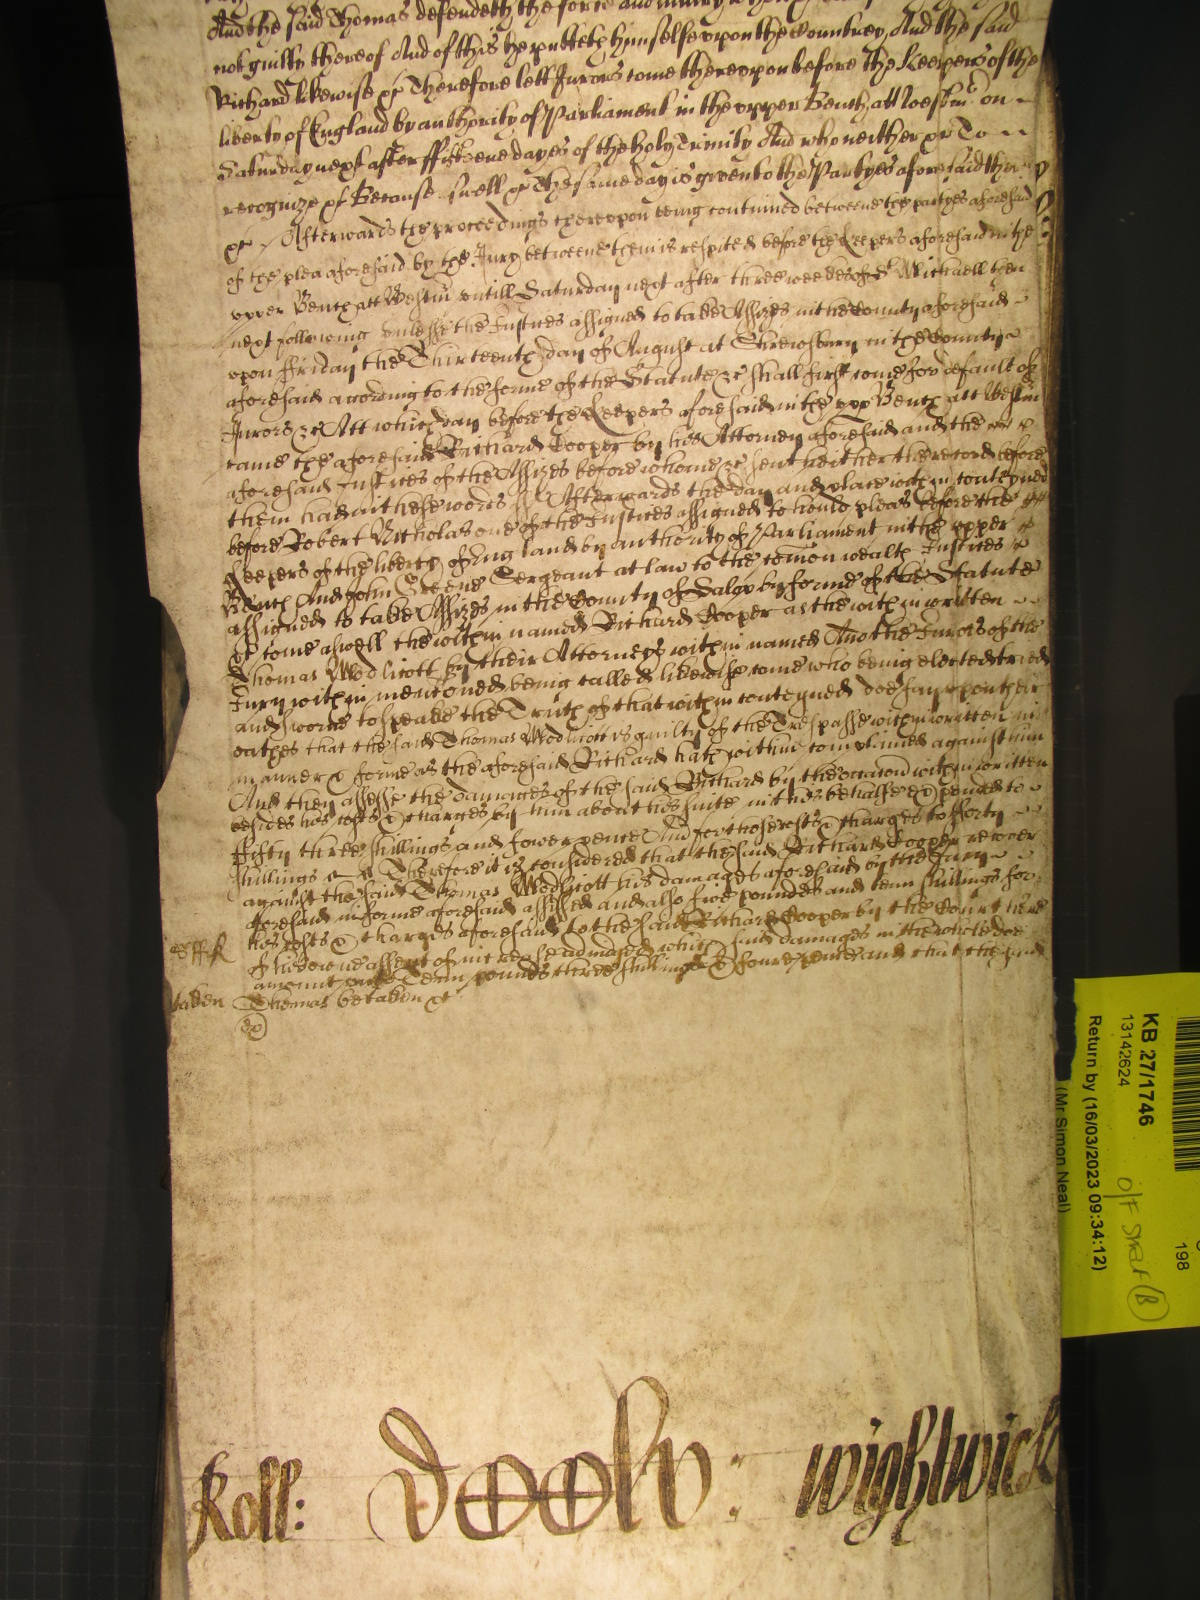 And the said Thomas defendeth the force and iniury
not guilty thereof And of this he putteth himselfe upon the Countrey And the said
Richard likewise &c Therefore lett Jurors come thereupon before the Keepers of the
liberty of England by authority of Parliament in the upper Bench att Westmr on
Saturday next after fifteene dayes of the holy Trinity And who neither &c To
recognize &c Because aswell &c The same day is given to the Partyes aforesaid there
&c Afterwards the proceedings thereupon being continued betweene the partyes aforesaid
of the plea aforesaid by the Jury betweene them is respited before the Keepers aforesaid in the
upper Bench att Westmr untill Saturday next after three weekes of St Michaell then
next following unlesse the Justices assigned to take Assizes in the County aforesaid
upon ffriday the Thirteenth day of August at Shrewsbury in the County
aforesaid according to the forme of the Statute &c shall first come for default of
Jurors &c Att which day before the Keepers aforesaid in the upper Bench att Westmr
came the aforesaid Richard Cooper by his Attorney aforesaid and the
aforesaid Justices of the Assizes before whome &c sent hither the record before
them had in these words ss Afterwards the day and place within conteyned
before Robert Nicholas one of the Justices assigned to hould pleas before the
Keepers of the liberty of England by authority of Parliament in the upper
Bench And John Greene Sergeant at law to the comon wealth Justices
assigned to take Assizes in the County of Salop by forme of the Statute
&c come aswell the within named Richard Cooper as the within written
Thomas Medlicott by their Attorneys within named And the Jurors of the
Jury within mentioned being called likewise come who being elected tried
and sworne to speake the Truth of that within conteyned doe say upon their
oathes that the said Thomas Medlicott is guilty of the Trespasse within written in
manner & forme as the aforesaid Richard hath within complained against him
And they assesse the damages of the said Richard by the occasion within written
besides his costs & charges by him about his suite in this behalfe expended to
fifty three shillings and fower pence And for those costs & charges to forty
shillings Therefore it is considered that the said Richard Cooper recover
against the said Thomas Medlicott his damages aforesaid by the Jury
aforesaid in forme aforesaid assessed and also five pounds and tenn shillings for
his costs & charges aforesaid to the said Richard Cooper by the Court here
of his owne assent of increase adiudged which said damages in the whole doe
amount unto Tenn pounds three shillings & foure pence and that the said
taken Thomas be taken &c
Roll: wightwick
KB 27/1746
13142624
Return by (16/03/2023 09:34:12)
(Mr Simon Neal)
198